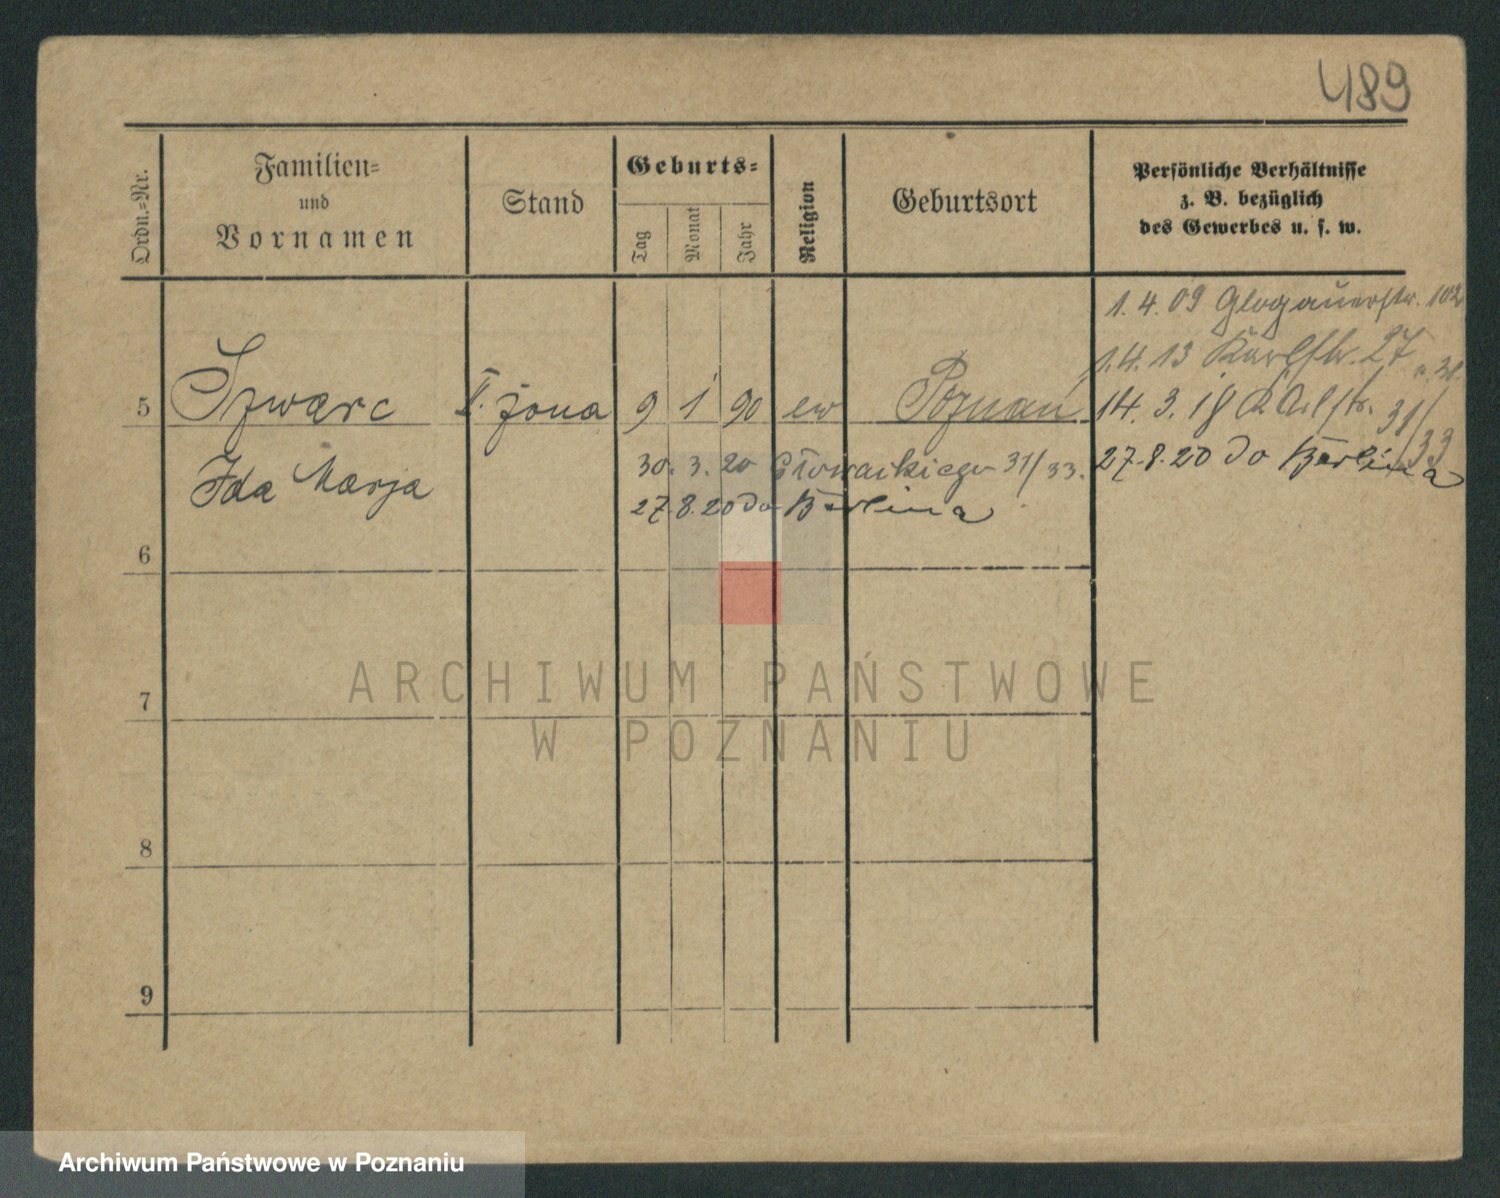 489
Ordn.-Nr.
Familien-
und
Vornamen
Stand
Geburts-
Tag
Monat
Jahr
Religion
Geburtsort
Persönliche Verhältnisse
z. B. bezüglich
des Gewerbes u. s. w.
1.4.09 Glogauerstr. 102
1.4.13 Karlstr. 27
5 Szwarc II. żona 9 1 90 ew Poznań 14.3.18 Karlstr. 31/33
Ida Marja 30.3.20 Głowackiego 31/33. 27.8.20 do Berlina
27.8.20 do Berlina
6
7
8
9
ARCHIWUM PAŃSTWOWE
W POZNANIU
Archiwum Państwowe w Poznaniu